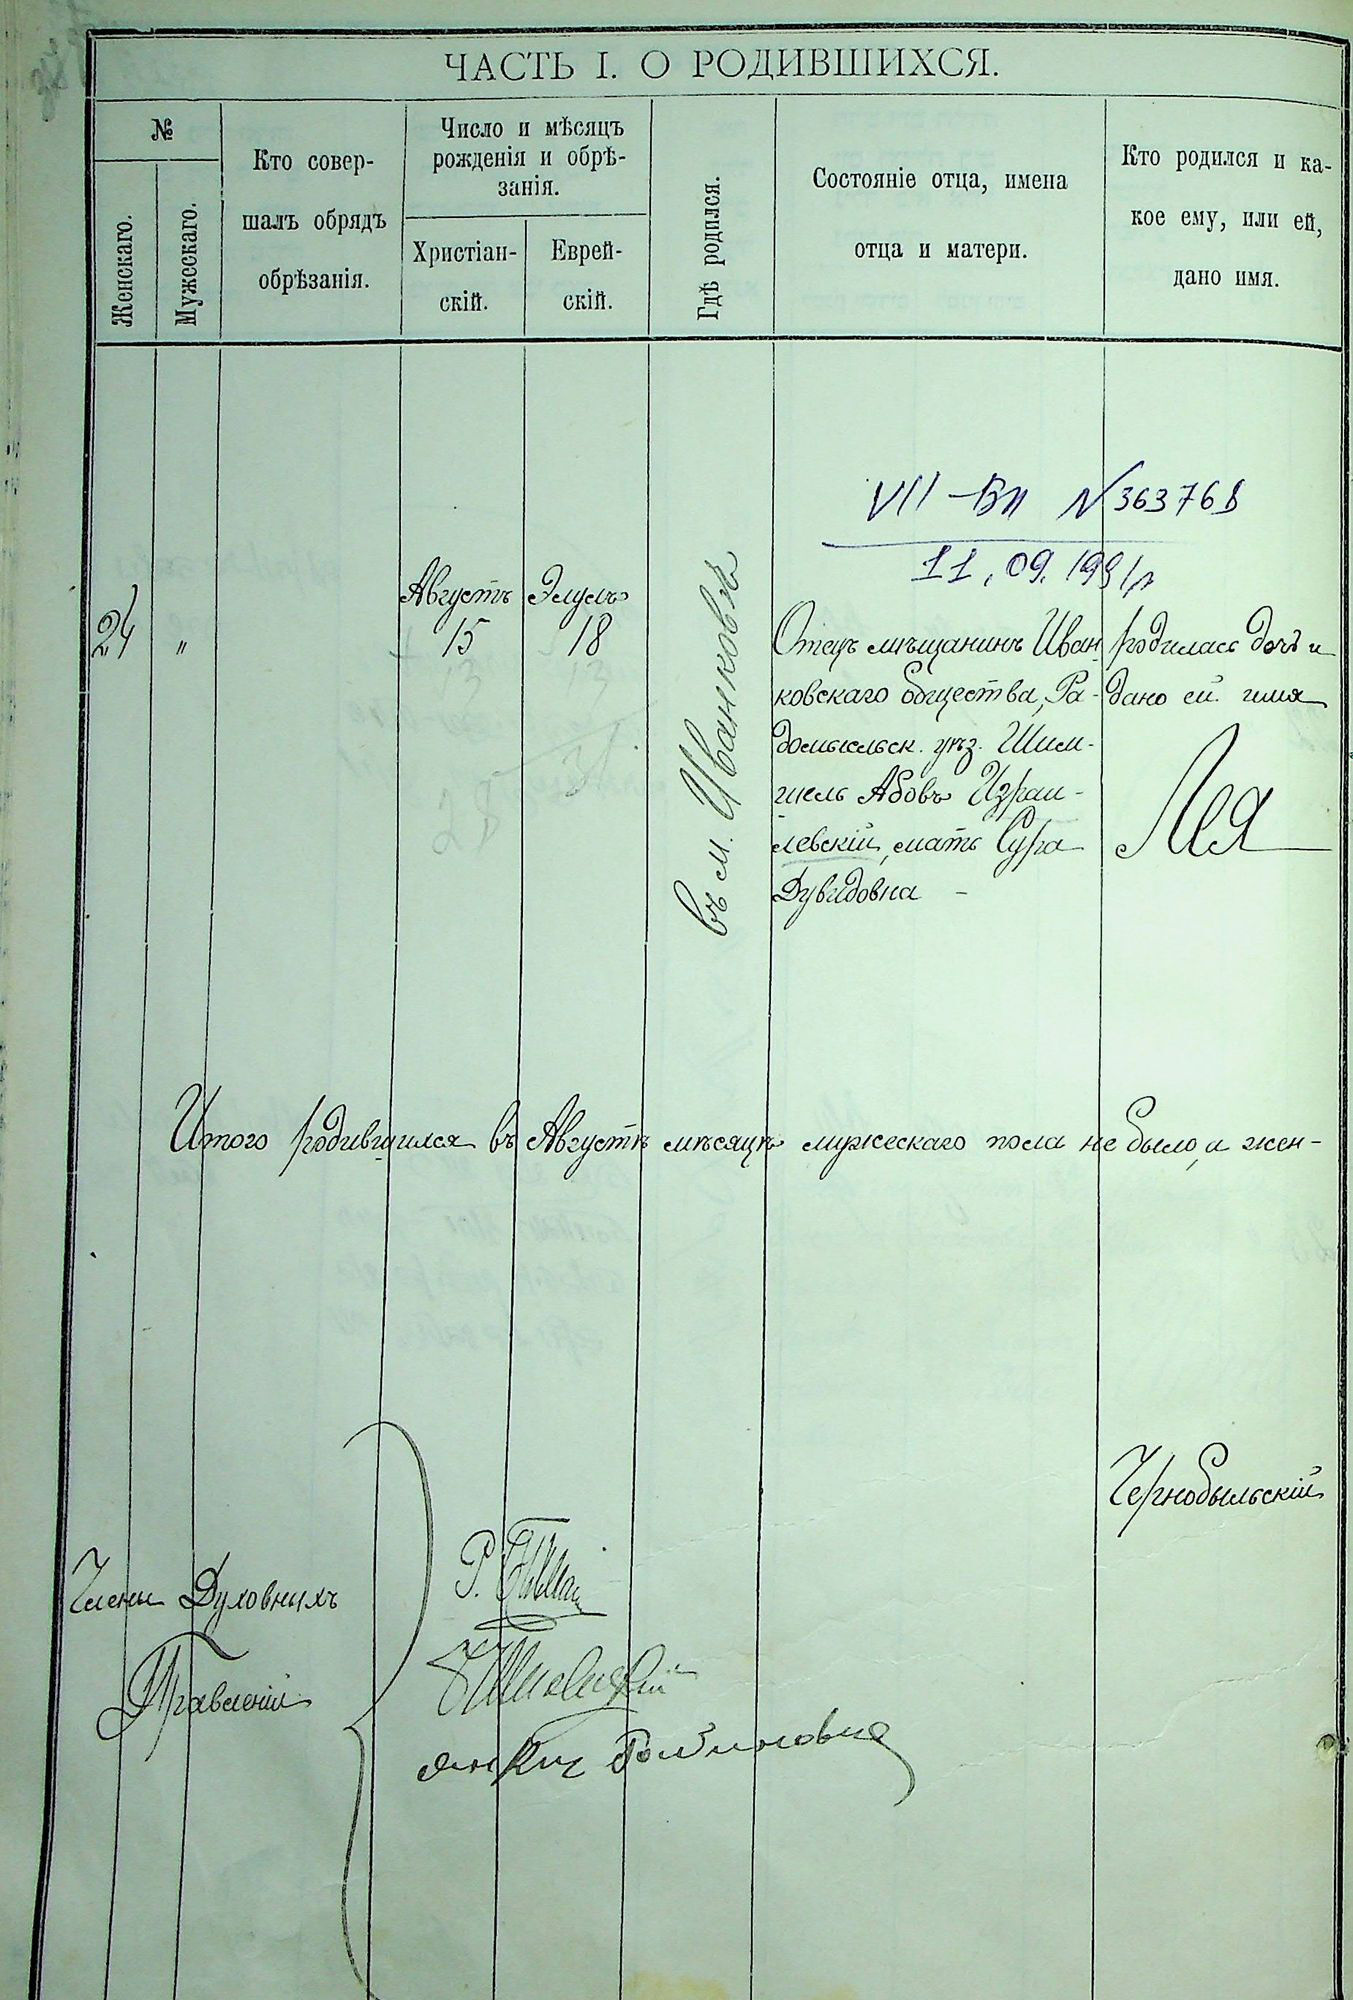 ЧАСТЬ I. О РОДИВШИХСЯ.
№
Женскаго.
Мужескаго.
Кто совер-
шалъ обрядъ
обрѣзанія.
Число и мѣсяцъ
рожденія и обрѣ-
занія.
Христіан-
скій.
Еврей-
скій.
Гдѣ родился.
Состояніе отца, имена
отца и матери.
Кто родился и ка-
кое ему, или ей,
дано имя.
VII – ВП № 363768
11.09.1991г
24
"
Августъ
15
Элулъ
18
въ м. Иванковѣ
Отецъ мѣщанинъ Иван
ковскаго общества, Ра-
домысльск. уѣз. Шим-
шель Абовъ Израи-
левскій, мать Сура
Дувидовна –
родилась дочь и
дано ей имя
Лея
Итого родившихся въ Августѣ мѣсяцѣ мужескаго пола не было, а жен-
Чернобыльскій
Члены Духовныхъ
Правленій
Р.